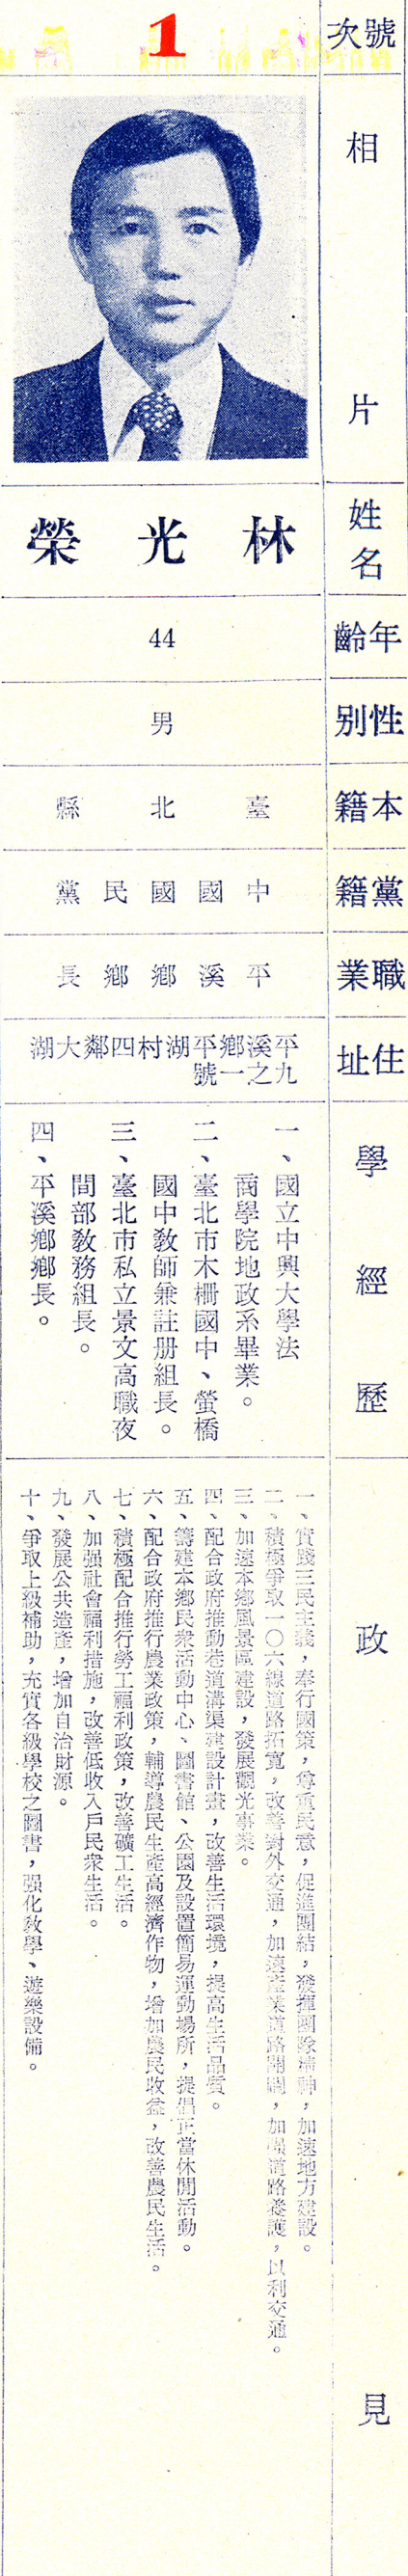 號次
1
相片
姓名
林光榮
年齡
44
性別
男
本籍
臺北縣
黨籍
中國國民黨
職業
平溪鄉鄉長
住址
平溪鄉平湖村四鄰大湖
九之一號
學經歷
一、國立中興大學法
商學院地政系畢業。
二、臺北市木柵國中、螢橋
國中教師兼註册組長。
三、臺北市私立景文高職夜
間部教務組長。
四、平溪鄉鄉長。
政見
一、實踐三民主義，奉行國策，尊重民意，促進團結，發揮團隊精神，加速地方建設。
二、積極爭取一〇六線道路拓寬，改善對外交通，加速產業道路開闢，加強道路養護，以利交通。
三、加速本鄉風景區建設，發展觀光事業。
四、配合政府推動巷道溝渠建設計畫，改善生活環境，提高生活品質。
五、籌建本鄉民衆活動中心、圖書館、公園及設置簡易運動場所，提倡正當休閒活動。
六、配合政府推行農業政策，輔導農民生產高經濟作物，增加農民收益，改善農民生活。
七、積極配合推行勞工福利政策，改善礦工生活。
八、加强社會福利措施，改善低收入戶民衆生活。
九、發展公共造產，增加自治財源。
十、爭取上級補助，充實各級學校之圖書，强化教學、遊樂設備。